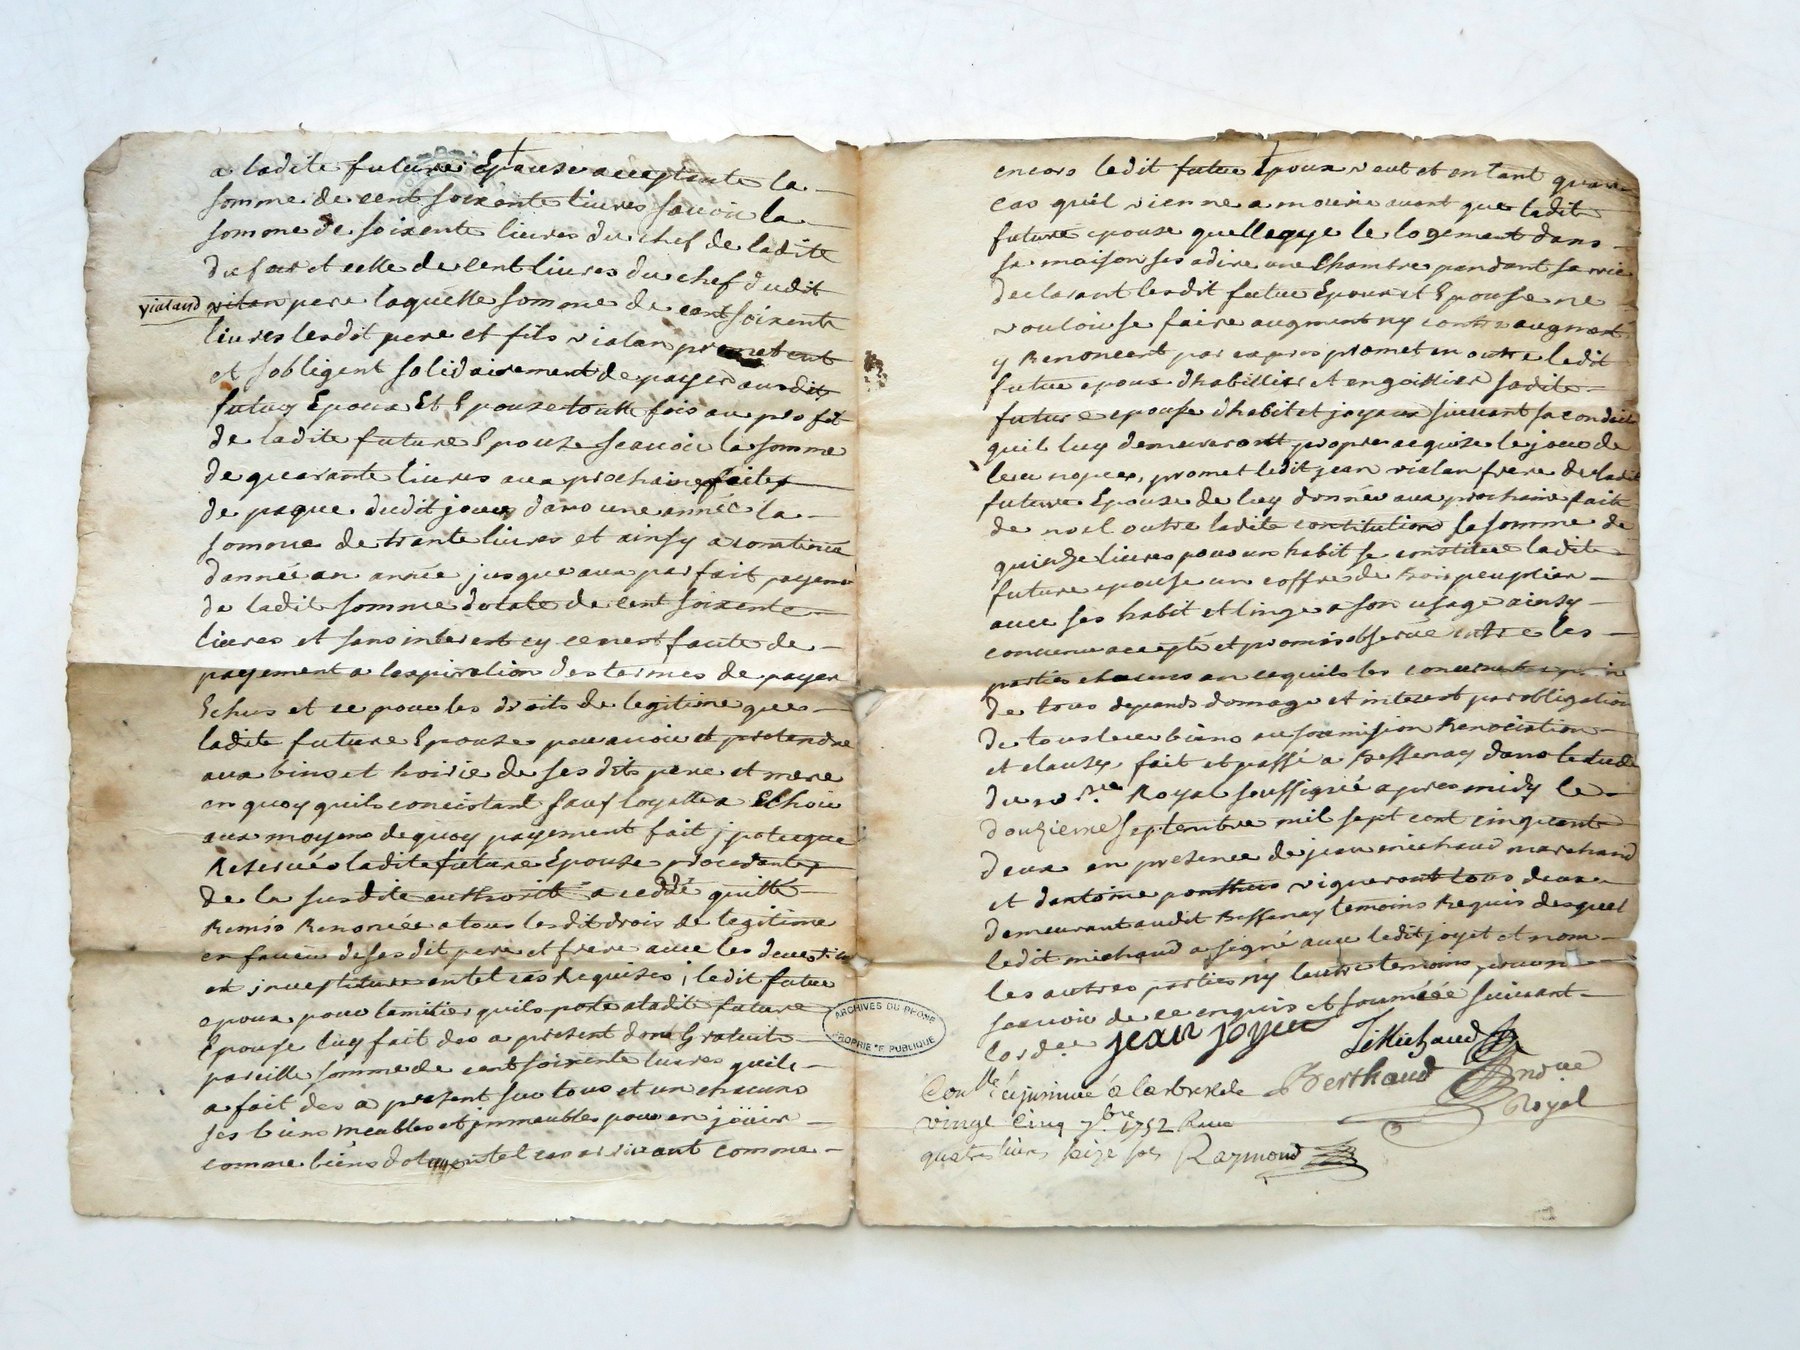 a ladite future Epouse acceptante la
somme de cent soixante livres savoir la
somme de soixente livres du chef de ladite
et celle de cent livres du chef dudit
vialand vilan pere laquelle somme de cent soixente
livres lesdit pere et fils vialan prometent
et sobligent solidairement de payer ausdits
futurs Epoux Et Epouse toutte fois au profit
de ladite future Epouze scavoir la somme
de quarante livres aux prochaines faites
de paque dudit jour dans une année la
somme de trante livres et ainsy a continué
dannée an année jusque aux parfait payeme
de ladit somme dotale de cent soixente
livres et sans interest sy ce nest faute de
payement a lexpiration des termes de payer
Echus et ce pour les droits de legitime que
ladite future Epouze peu avoir et pretandre
aux bins et hoirie de ses dits pere et mere
en quoy quils concistant sauf loyalle Echoir
aux moyens de quoy payement fait jpotecque
Reservée ladite future Epouse procedante
de la susdite authorité a ceddé quitté
Remis Renoncée a tous lesdit drois de legitime
en faveur de ses dit pere et frere avec les
et jnvestiture en tel cas Requises ; ledit futur
epoux pour lamitier quils porte a ladit future
Epouse luy fait des a present don Gratuit
pareille somme de cent soixente livres quile
a fait des a present sur tous et un chacuns
ses biens meubles et jmmeubles pour en joüir
comme biens dotaux antel cas arrivant comme
encors ledit futur Epoux veut et entant quau
cas quil vienne a mourir avant que ladit
future epouse quelle aye le logement dans
sa maison ses adire une Chambre pandant sa vie
declarant lesdit futur Epoux et Epouse ne
vouloir se faire augment ny contre augment
y Renoncent par expres promet en outre ledit
futur epoux dhabillier et enjoillier sadite
future epouse dhabit et joyaux suivant sa condit
quil luy demeureront propre acquise le jour de
leur nopces, promet ledit jean vialan frere de ladit
future Epouse de luy donnée aux prochaine faite
de noel outre ladite constitution la somme de
quinze livres pour un habit se constitue ladite
future epouse un coffre de bois peuplier
avec ses habit et linge a son usage ainsy
convenu accepté et promis observé entre les
parties chacuns en ce quils les concernent a peine
de tous depands domage et interest par obligation
de tous leur biens au soumission Renociation
et clauze, fait et passé a Bessenay dans letude
du nore Royal soussigné apres midy le
douzieme septembre mil sept cent cinquante
deux en presence de jean michaud marchand
et dantoine ponthus vigneront tous deux
demeurant audit Bessenay temoins Requis desquel
ledit michaud a signé avec ledit joyet et nom
les autres parties ny lautre temoins pour ne
scavoir de ce enquis et sommée suivant
lordce jean joyet J Michaud
Conlle & jnsinué a larbresle Berthaud nore
vingt cinq 7bre 1752 Recu Royal
quatre livres seize sols Raymond
ARCHIVES DU RHONE
PROPRIETE PUBLIQUE